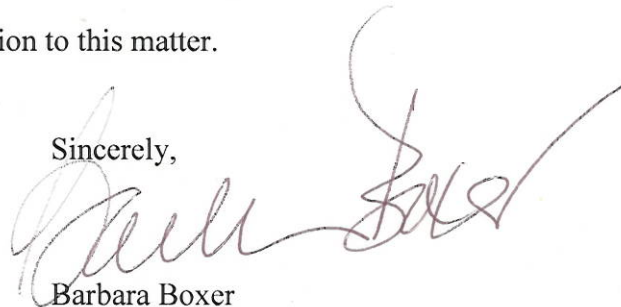 ion to this matter.
Sincerely,
Barbara Boxer
Barbara Boxer